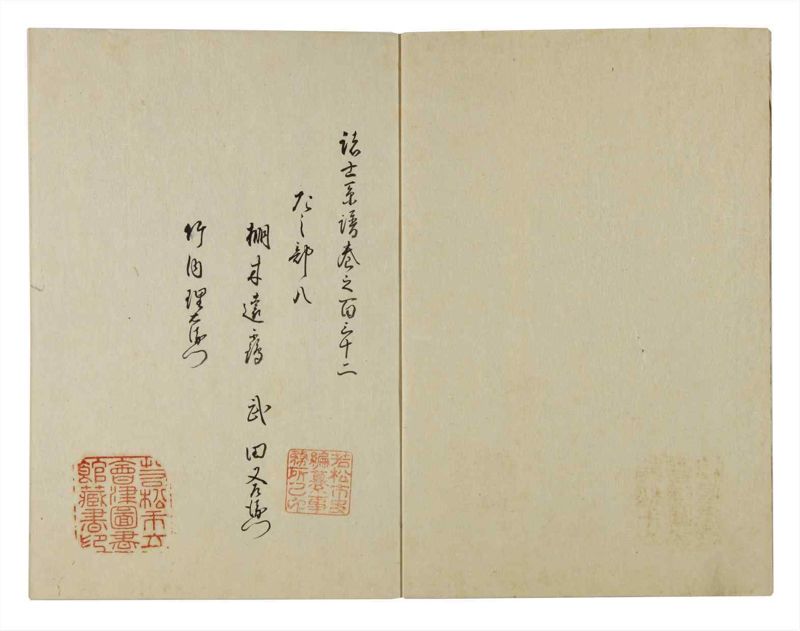 諸士系譜巻之百三十二
た之部八
棚木遠馬 武田又右衛門
竹内理右衛門
若松市史
編纂事
務所之印
若松市立
會津圖書
館藏書印